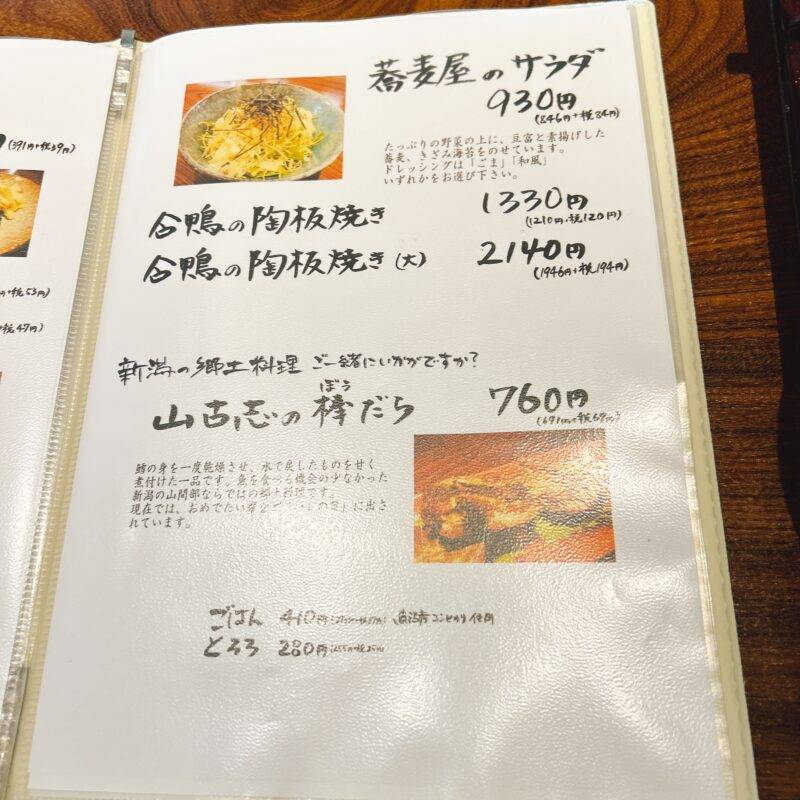 (391円+税39円)
円+税53円)
円+税47円)
蕎麦屋のサラダ
930円
(846円+税84円)
たっぷりの野菜の上に、豆富と素揚げした
蕎麦、きざみ海苔をのせています。
ドレッシングは「ごま」「和風」
いずれかをお選び下さい。
合鴨の陶板焼き 1330円
(1210円+税120円)
合鴨の陶板焼き(大) 2140円
(1946円+税194円)
新潟の郷土料理 ご一緒にいかがですか?
ぼう
山古志の棒だら 760円
(691円+税69円)
鱈の身を一度乾燥させ、水で戻したものを甘く
煮付けた一品です。魚を食べる機会の少なかった
新潟の山間部ならではの郷土料理です。
現在では、おめでたい に出さ
れています。
ごはん 410円 コシヒカリ使用
とろろ 280円